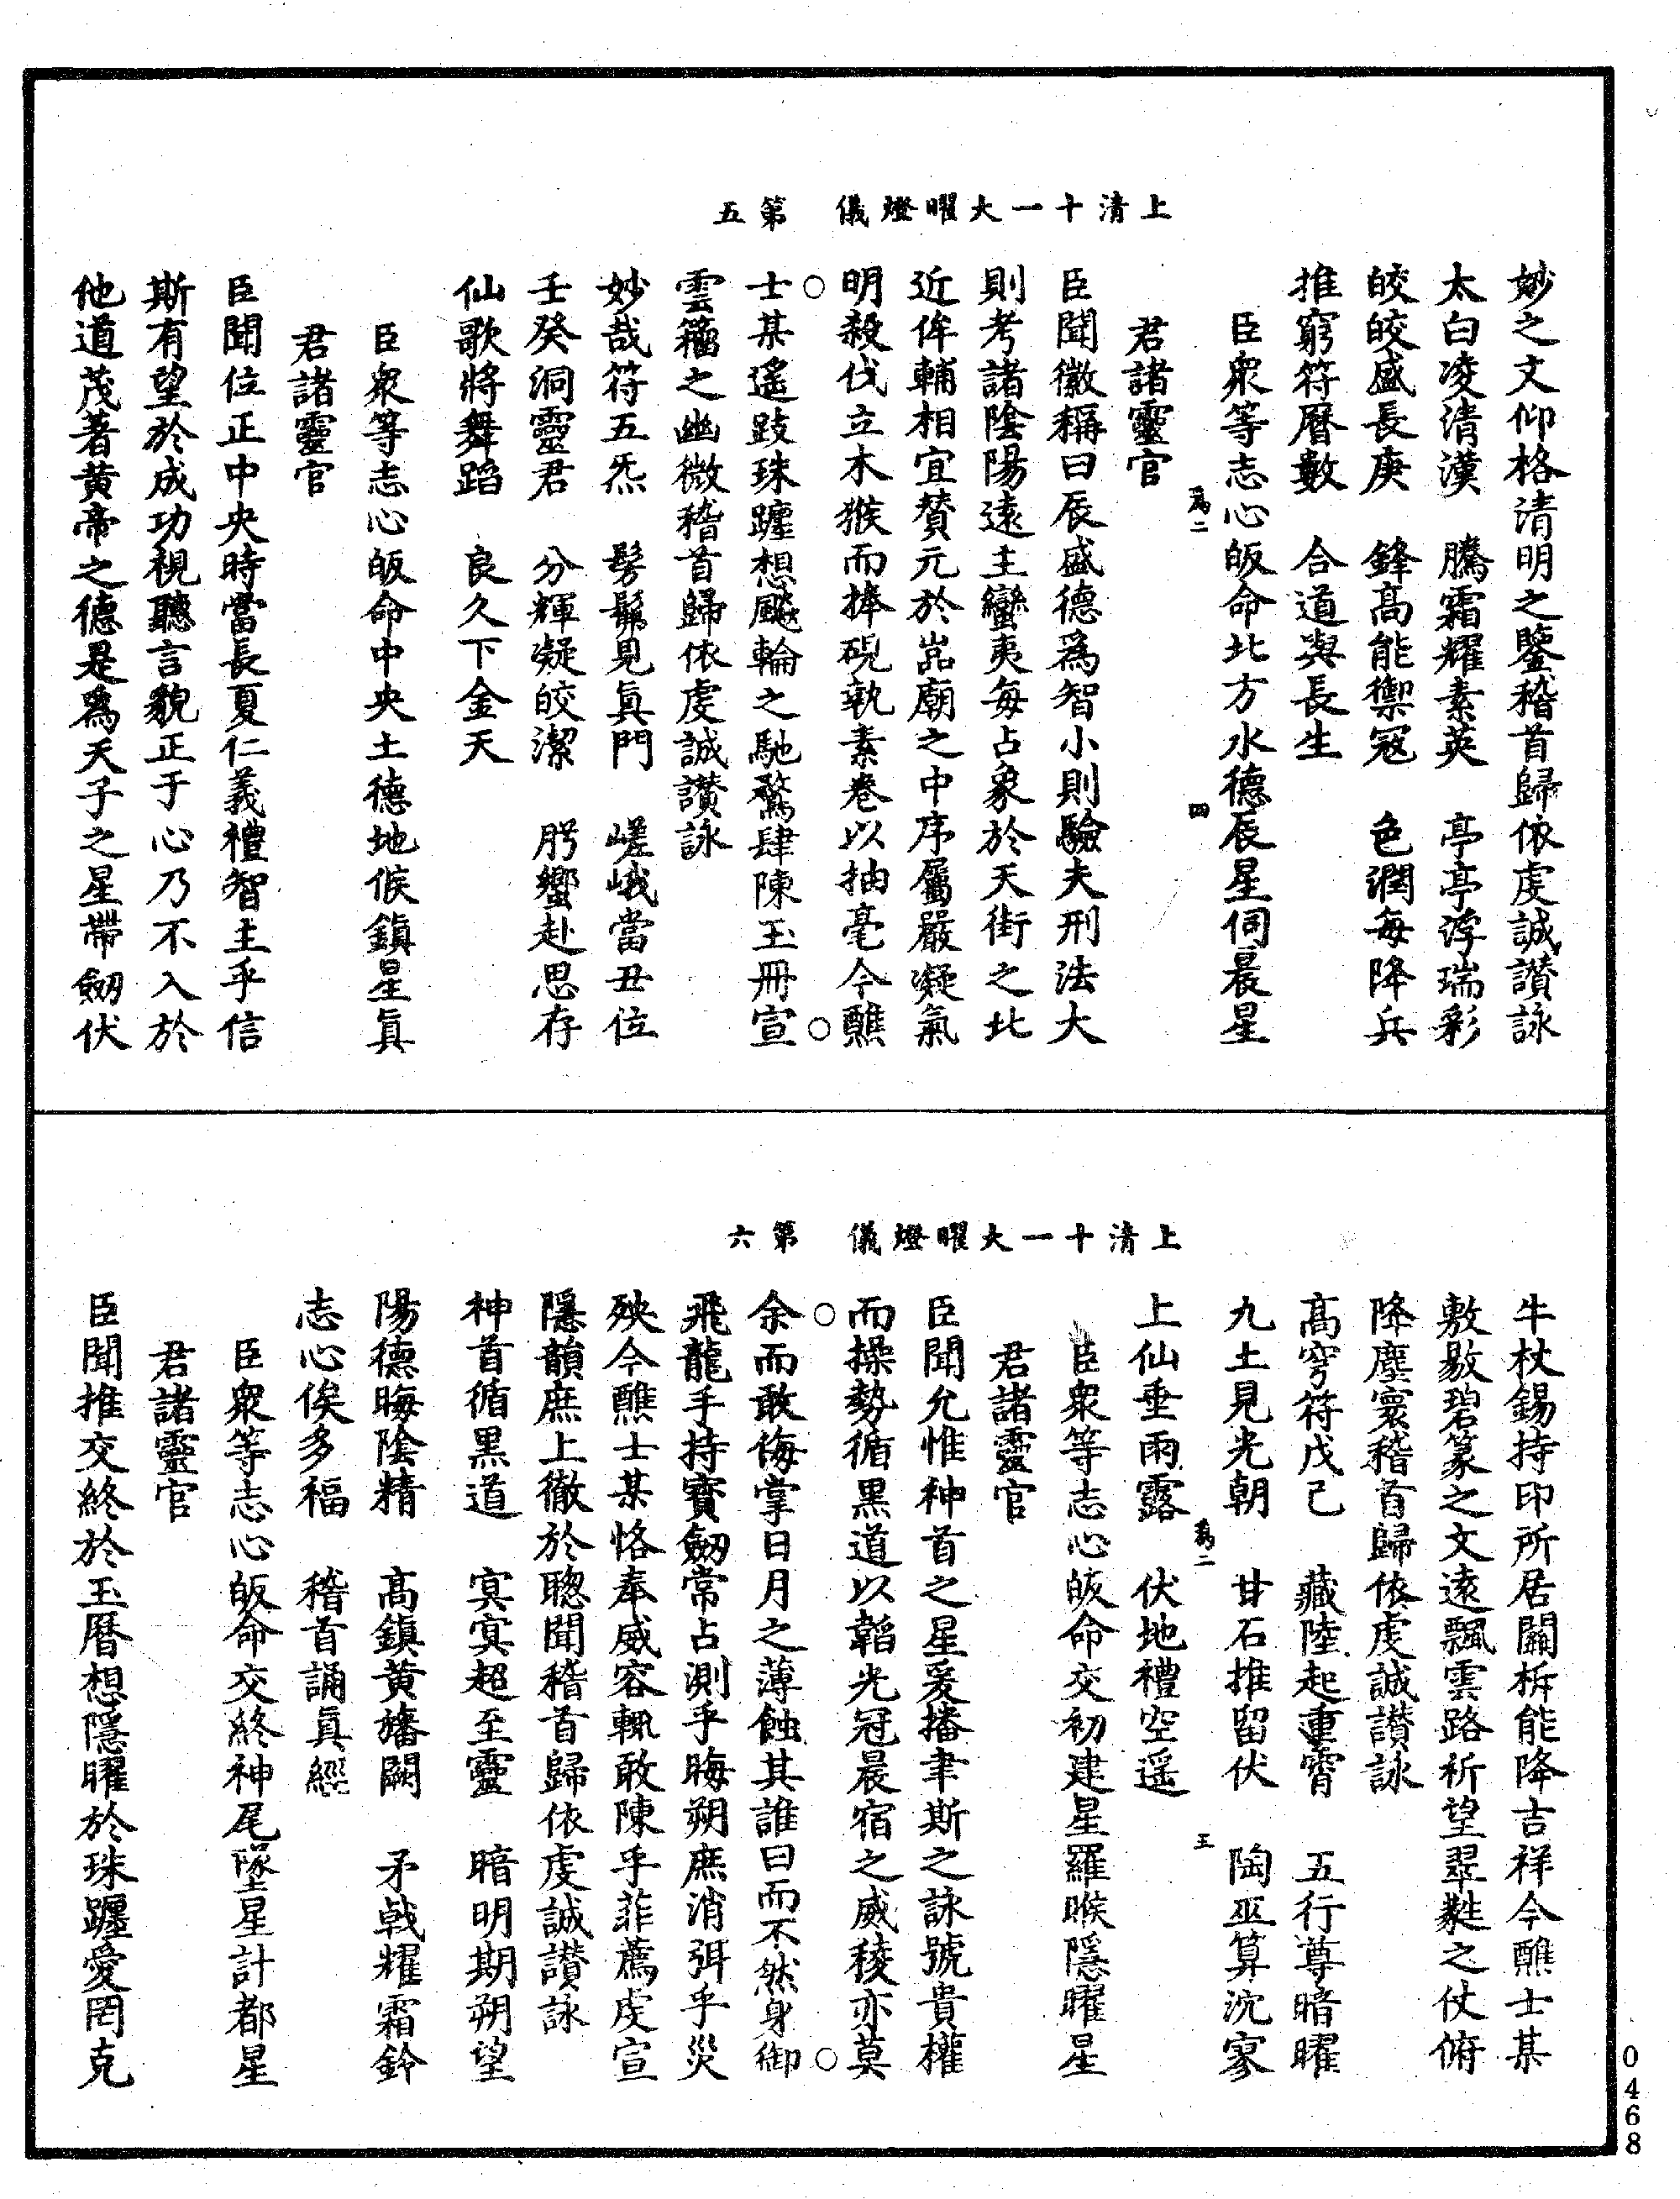 上清十一大曜燈儀　第五
妙之文仰格清明之鑒稽首歸依虔誠讃詠
太白凌清漢　騰霜耀素英　亭亭浮瑞彩
皎皎盛長庚　鋒高能禦冦　色潤每降兵
推窮符曆數　合道與長生
臣衆等志心皈命北方水德辰星伺晨星
君諸靈官
爲二　四
臣聞徽稱曰辰盛德爲智小則驗夫刑法大
則考諸陰陽遠主蠻夷每占象於天街之北
近侔輔相宜賛元於嵓廟之中序屬嚴凝氣
明殺伐立木猴而捧硯執素卷以抽毫今醮
士某遙跂珠躔想飈輪之馳騖肆陳玉冊宣
雲籀之幽微稽首歸依虔誠讃詠
妙哉符五炁　髣髴見眞門　嵯峨當丑位
壬癸洞靈君　分輝凝皎潔　肹蠁赴思存
仙歌將舞蹈　良久下金天
臣衆等志心皈命中央土德地候鎮星眞
君諸靈官
臣聞位正中央時當長夏仁義禮智主乎信
斯有望於成功視聽言貌正于心乃不入於
他道茂著黄帝之德是爲天子之星帶劒伏
上清十一大曜燈儀　第六
牛杖錫持印所居闢柝能降吉祥今醮士某
敷敭碧篆之文遠飄雲路祈望翠蕤之仗俯
降塵寰稽首歸依虔誠讃詠
高穹符戊己　藏陸起重霄　五行尊暗曜
九土見光朝　甘石推留伏　陶巫算沉寥
上仙垂雨露　伏地禮空遥
爲二　五
臣衆等志心皈命交初建星羅睺隱曜星
君諸靈官
臣聞允惟神首之星爰播聿斯之詠號貴權
而操勢循黒道以韜光冠晨宿之威稜亦莫
余而敢侮掌日月之薄蝕其誰曰而不然身御
飛龍手持寶劒常占測乎晦朔庶消弭乎災
殃今醮士某恪奉威容輒敢陳乎菲薦虔宣
隱韻庶上徹於聰聞稽首歸依虔誠讃詠
神首循黒道　冥冥超至靈　暗明期朔望
陽德晦陰精　高鎮黄旛闕　矛戟耀霜鈴
志心俟多福　稽首誦眞經
臣衆等志心皈命交終神尾墜星計都星
君諸靈官
臣聞推交終於玉曆想隱曜於珠躔愛罔克
0468